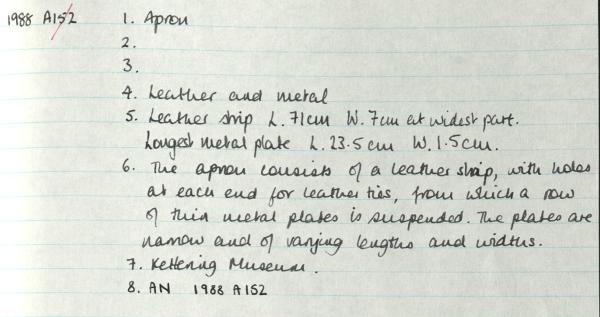 1988 A152
1. Apron
2.
3.
4. Leather and metal
5. Leather strip L. 71cm W. 7cm at widest part.
Longest metal plate L. 23.5cm W. 1.5cm.
6. The apron consists of a leather strip, with holes
at each end for leather ties, from which a row
of thin metal plates is suspended. The plates are
narrow and of varying lengths and widths.
7. Kettering Museum.
8. AN 1988 A152